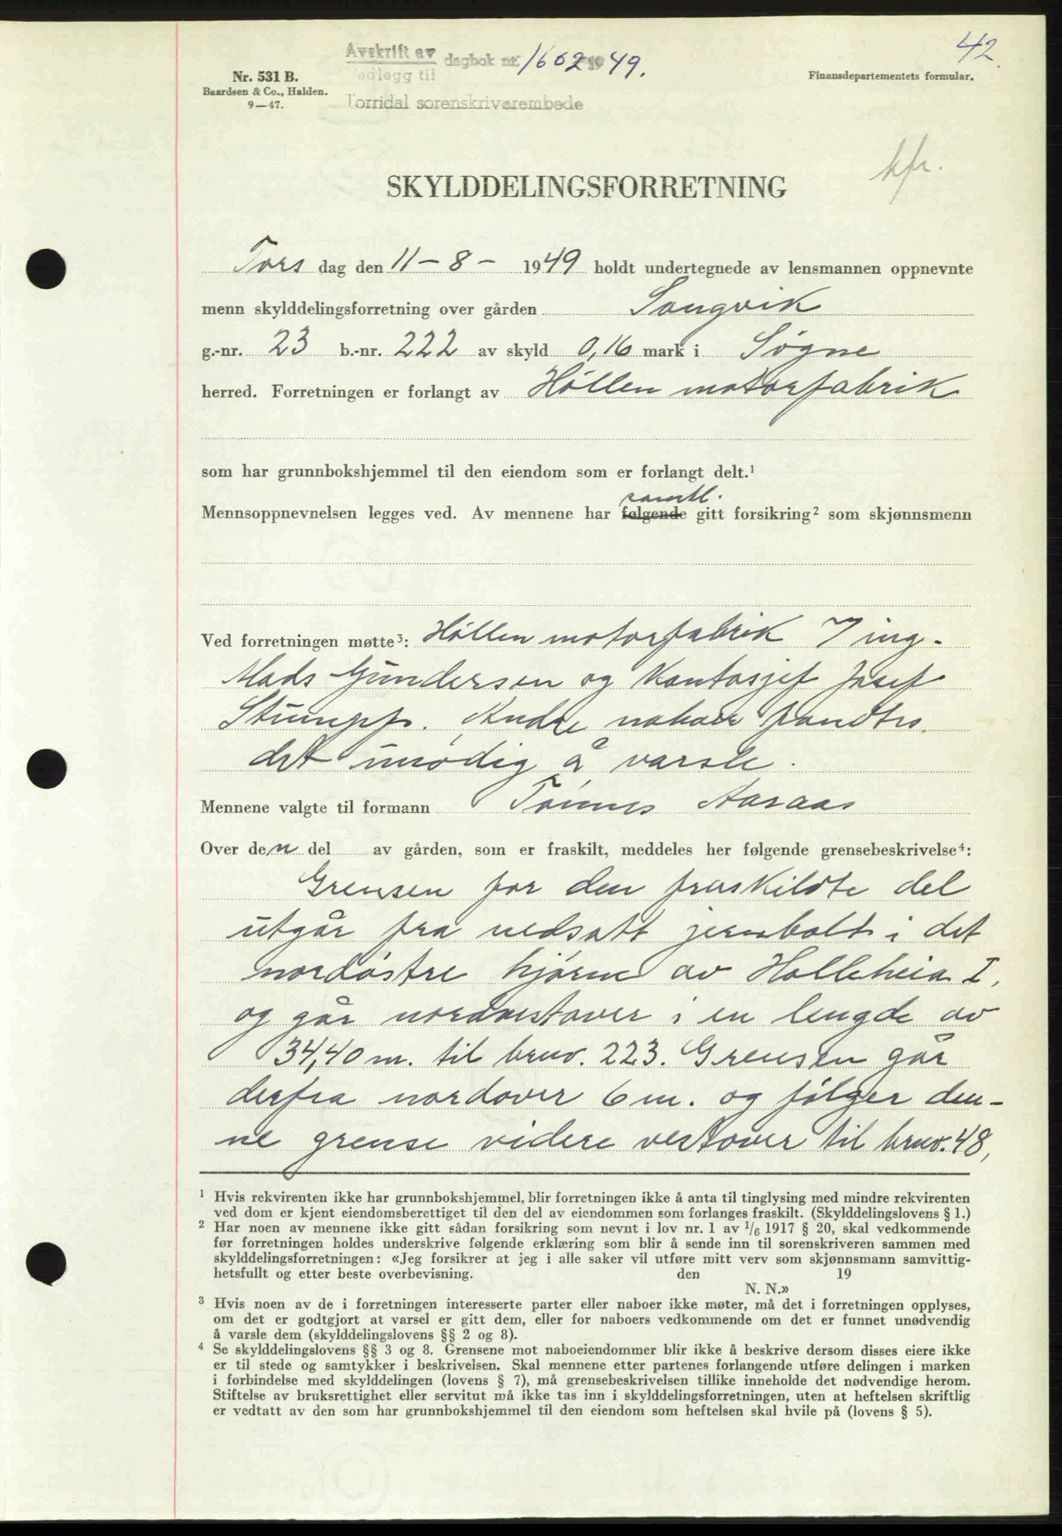 42.
Avskrift av dagbok nr. 1602 1949.
Vedlegg til
Torridal sorenskriverembede
Nr. 531 B.
Baardsen & Co., Halden.
9—47.
Finansdepartementets formular.
kfr.
SKYLDDELINGSFORRETNING
Tors dag den 11 - 8 - 1949 holdt undertegnede av lensmannen oppnevnte
menn skylddelingsforretning over gården Songvik
g.-nr. 23 b.-nr. 222 av skyld 0,16 mark i Søgne
herred. Forretningen er forlangt av Høllen motorfabrik
som har grunnbokshjemmel til den eiendom som er forlangt delt.¹
samtl.
Mennsoppnevnelsen legges ved. Av mennene har følgende gitt forsikring² som skjønnsmenn
Ved forretningen møtte³: Høllen motorfabrik v/ ing.
Mads Gundersen og Kontorsjef Josef
Stumpf. Andre naboer fandtes
det unødig å varsle.
Mennene valgte til formann Tønnes Aasaas
Over den del av gården, som er fraskilt, meddeles her følgende grensebeskrivelse⁴:
Grensen for den fraskildte del
utgår fra nedsatt jernbolt i det
nordøstre hjørne av Holleheia I,
og går nordvestover i en lengde av
34,40 m. til brnr. 223. Grensen går
derfra nordover 6 m. og følger den-
ne grense videre vestover til brnr. 48,
¹ Hvis rekvirenten ikke har grunnbokshjemmel, blir forretningen ikke å anta til tinglysing med mindre rekvirenten
ved dom er kjent eiendomsberettiget til den del av eiendommen som forlanges fraskilt. (Skylddelingslovens § 1.)
² Har noen av mennene ikke gitt sådan forsikring som nevnt i lov nr. 1 av 1/6 1917 § 20, skal vedkommende
før forretningen holdes underskrive følgende erklæring som blir å sende inn til sorenskriveren sammen med
skylddelingsforretningen: «Jeg forsikrer at jeg i alle saker vil utføre mitt verv som skjønnsmann samvittig-
hetsfullt og etter beste overbevisning. den 19
N. N.»
³ Hvis noen av de i forretningen interesserte parter eller naboer ikke møter, må det i forretningen opplyses,
om det er godtgjort at varsel er gitt dem, eller for naboers vedkommende om det er funnet unødvendig
å varsle dem (skylddelingslovens §§ 2 og 8).
⁴ Se skylddelingslovens §§ 3 og 8. Grensene mot naboeiendommer blir ikke å beskrive dersom disses eiere ikke
er til stede og samtykker i beskrivelsen. Skal mennene etter partenes forlangende utføre delingen i marken
i forbindelse med skylddelingen (lovens § 7), må grensebeskrivelsen tillike inneholde det nødvendige herom.
Stiftelse av bruksrettighet eller servitut må ikke tas inn i skylddelingsforretningen, uten at heftelsen skriftlig
er vedtatt av den som har grunnbokshjemmel til den eiendom som heftelsen skal hvile på (lovens § 5).